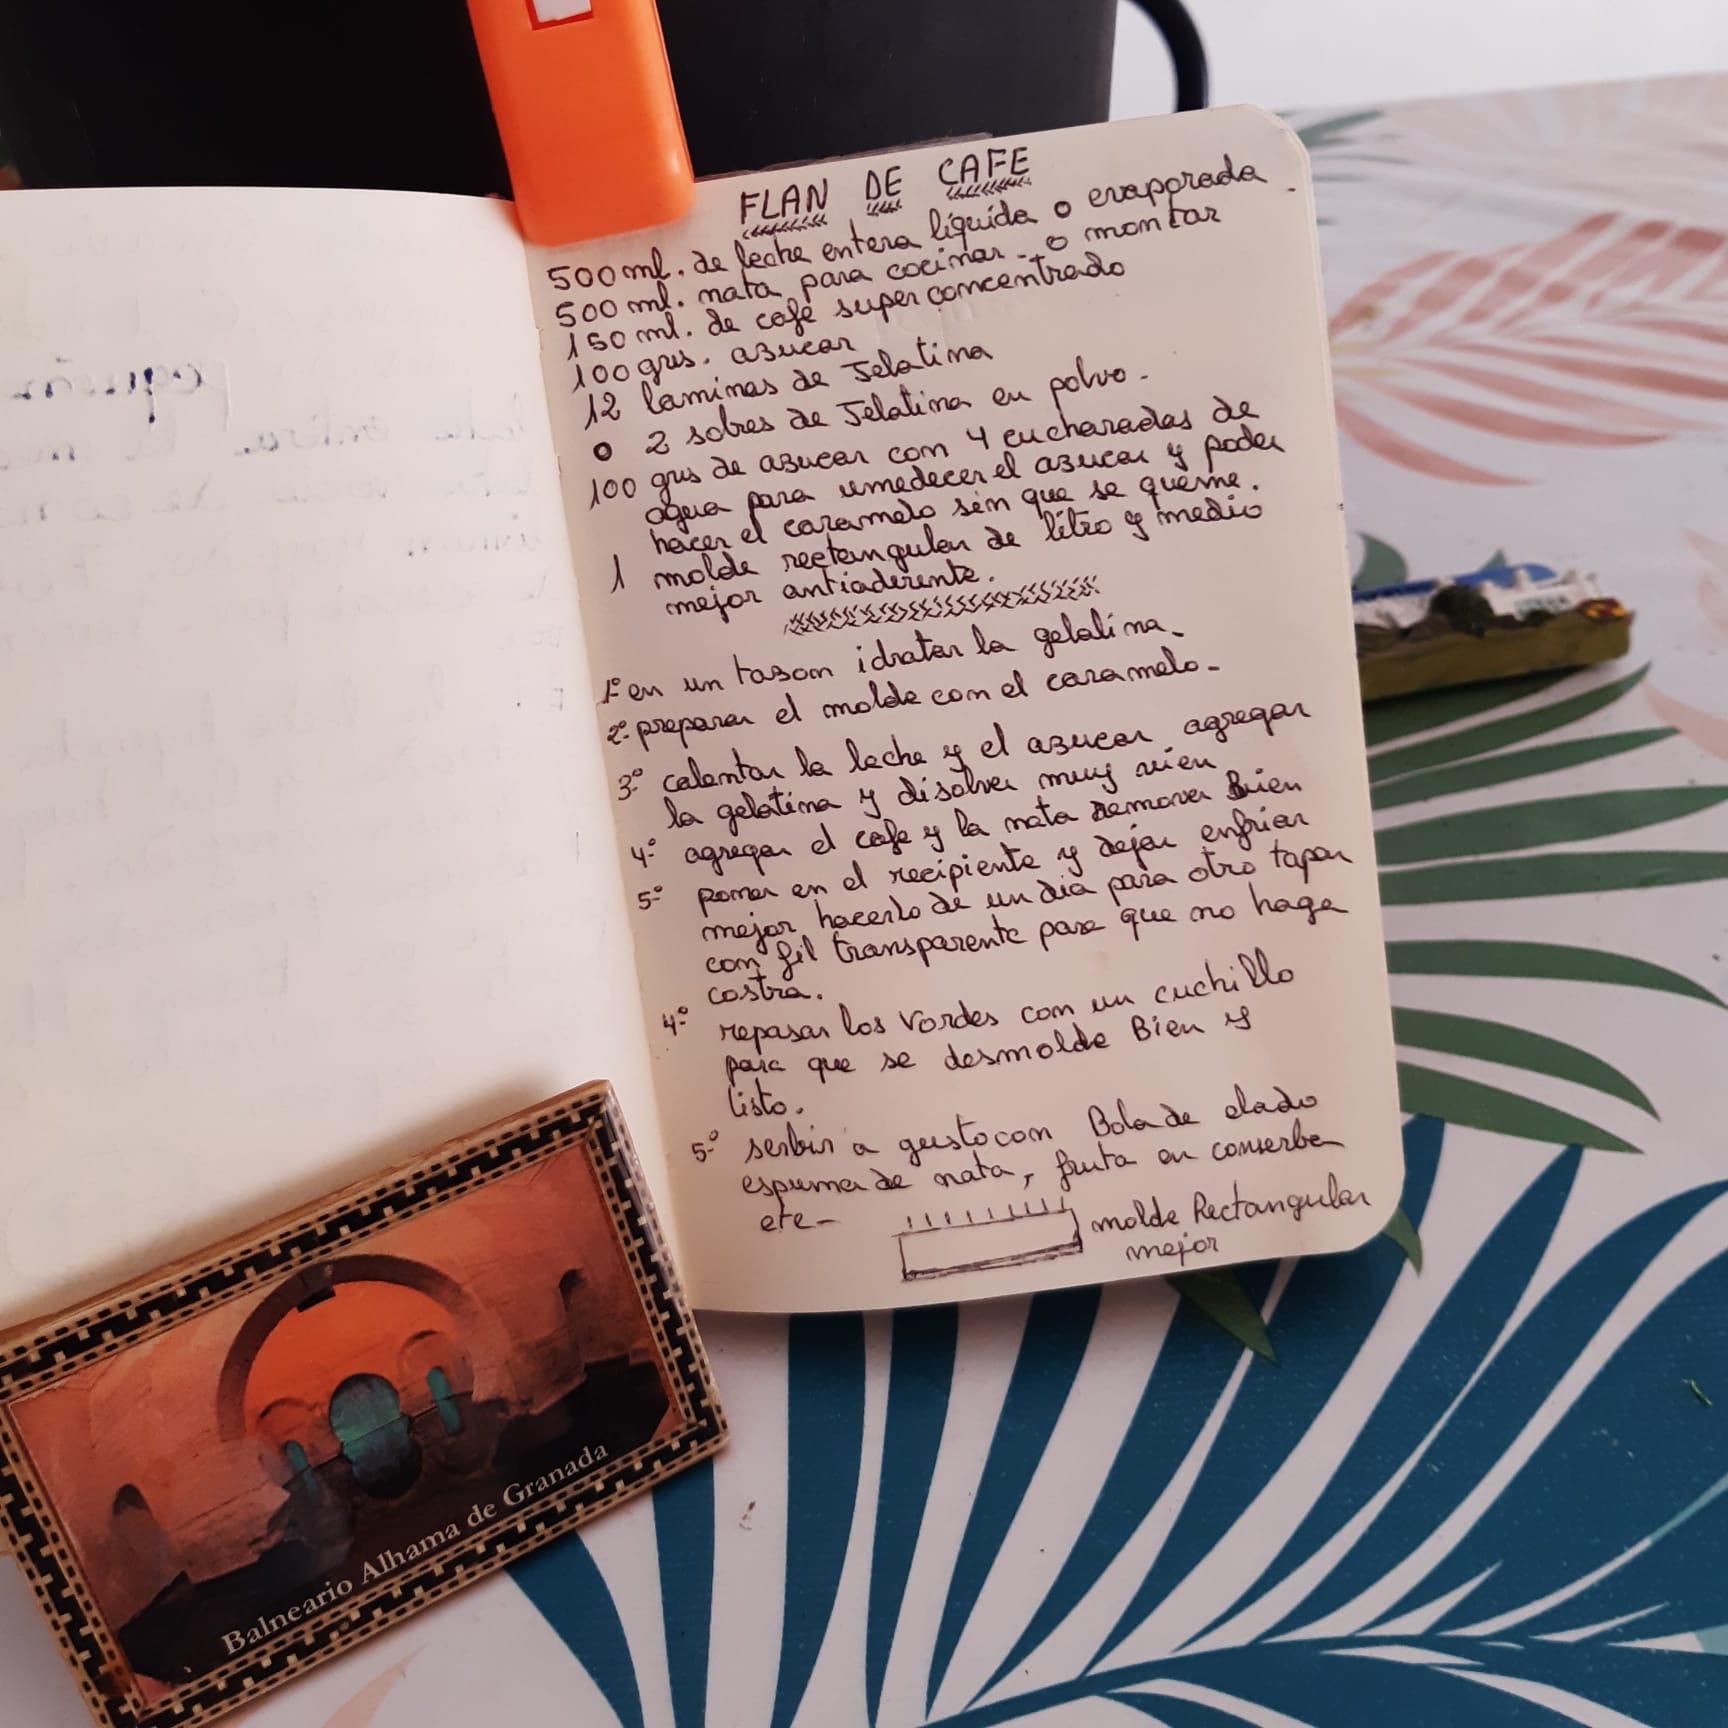 FLAN DE CAFE
500 ml. de leche entera líquida o evaporada.
500 ml. nata para cocinar - o montar
150 ml. de cafe super concentrado
100 grs. azucar
12 laminas de Jelatina
o 2 sobres de Jelatina en polvo.
100 grs de azucar con 4 cucharadas de
agua para umedecer el azucar y poder
hacer el caramelo sin que se queme.
1 molde rectangular de litro y medio
mejor antiaderente.
1º en un tason idratar la gelatina.
2º preparar el molde con el caramelo.
3º calentar la leche y el azucar agregar
la gelatina y disolver muy vien
4º agregar el cafe y la nata remover Bien
5º poner en el recipiente y dejar enfriar
mejor hacerlo de un dia para otro tapar
con fil transparente para que no haga
costra.
4º repasar los vordes con un cuchillo
para que se desmolde Bien y
listo.
5º serbir a gusto con Bola de elado
espuma de nata, fruta en conserba
etc-
molde Rectangular
mejor
Balneario Alhama de Granada